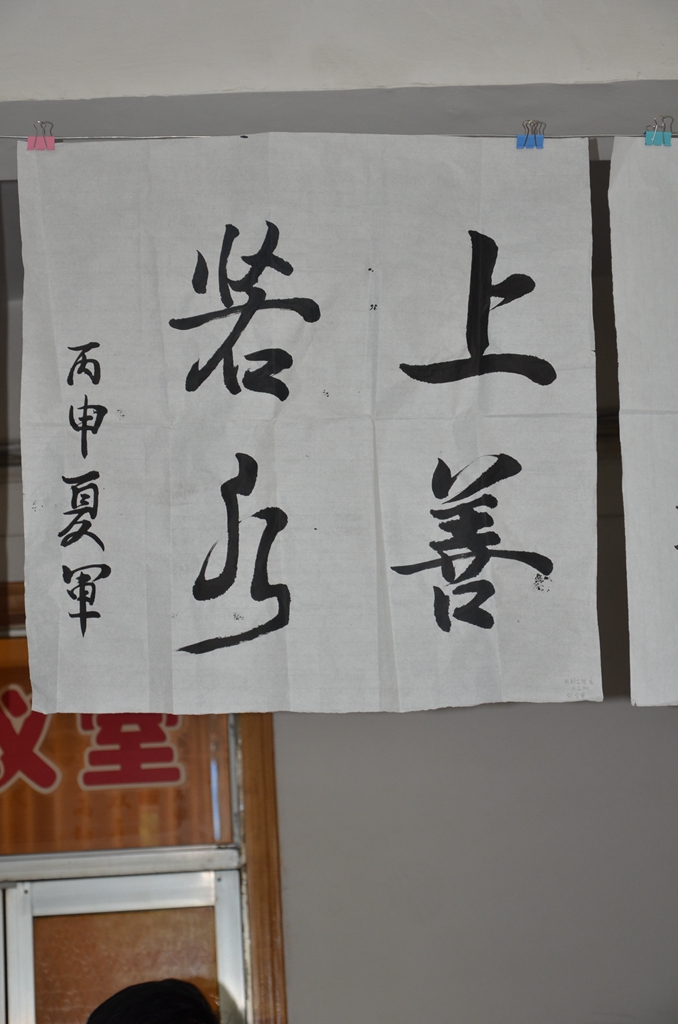 上善
若水
丙申夏軍
室